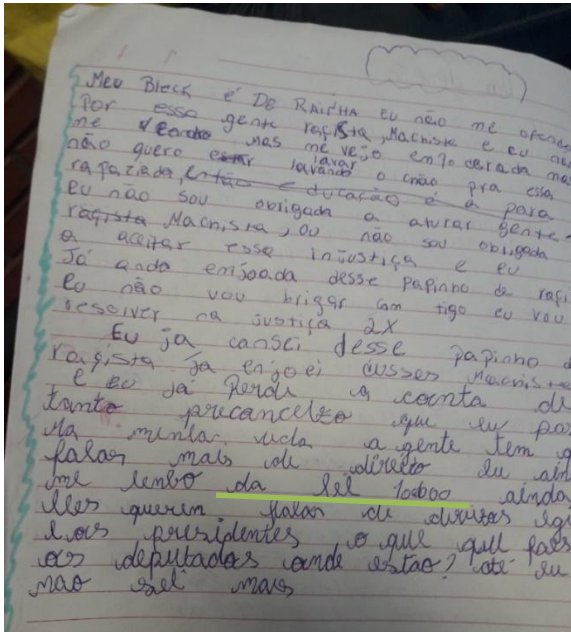 Meu Bleck é DE RAINHA eu não me ofendo
Por essa gente raçista, Machista e eu não
me vendo mas me vejo encerada mas
não quero estar lavar o chão pra essa
rapaziada, então educação é a para
eu não sou lavando obrigada a aturar gente
raçista Machista, ou não sou obrigada
a aceitar essa injustiça e eu
Já ando enjoada desse papinho de raçi
Eu não vou brigar com tigo eu vou
resolver na justiça 2X
Eu ja cansei desse papinho d
raçista ja enjoei dusses Machiste
e eu já perde a coonta de
tanto precanceito que eu pas
Na minha vida a gente tem q
falar mais de direito eu ain
me lembo da lei 10000 ainda
Eles querin falar de divisos igi
e os presidentes, o que que faes
os deputados onde estão? até eu
não sei mais